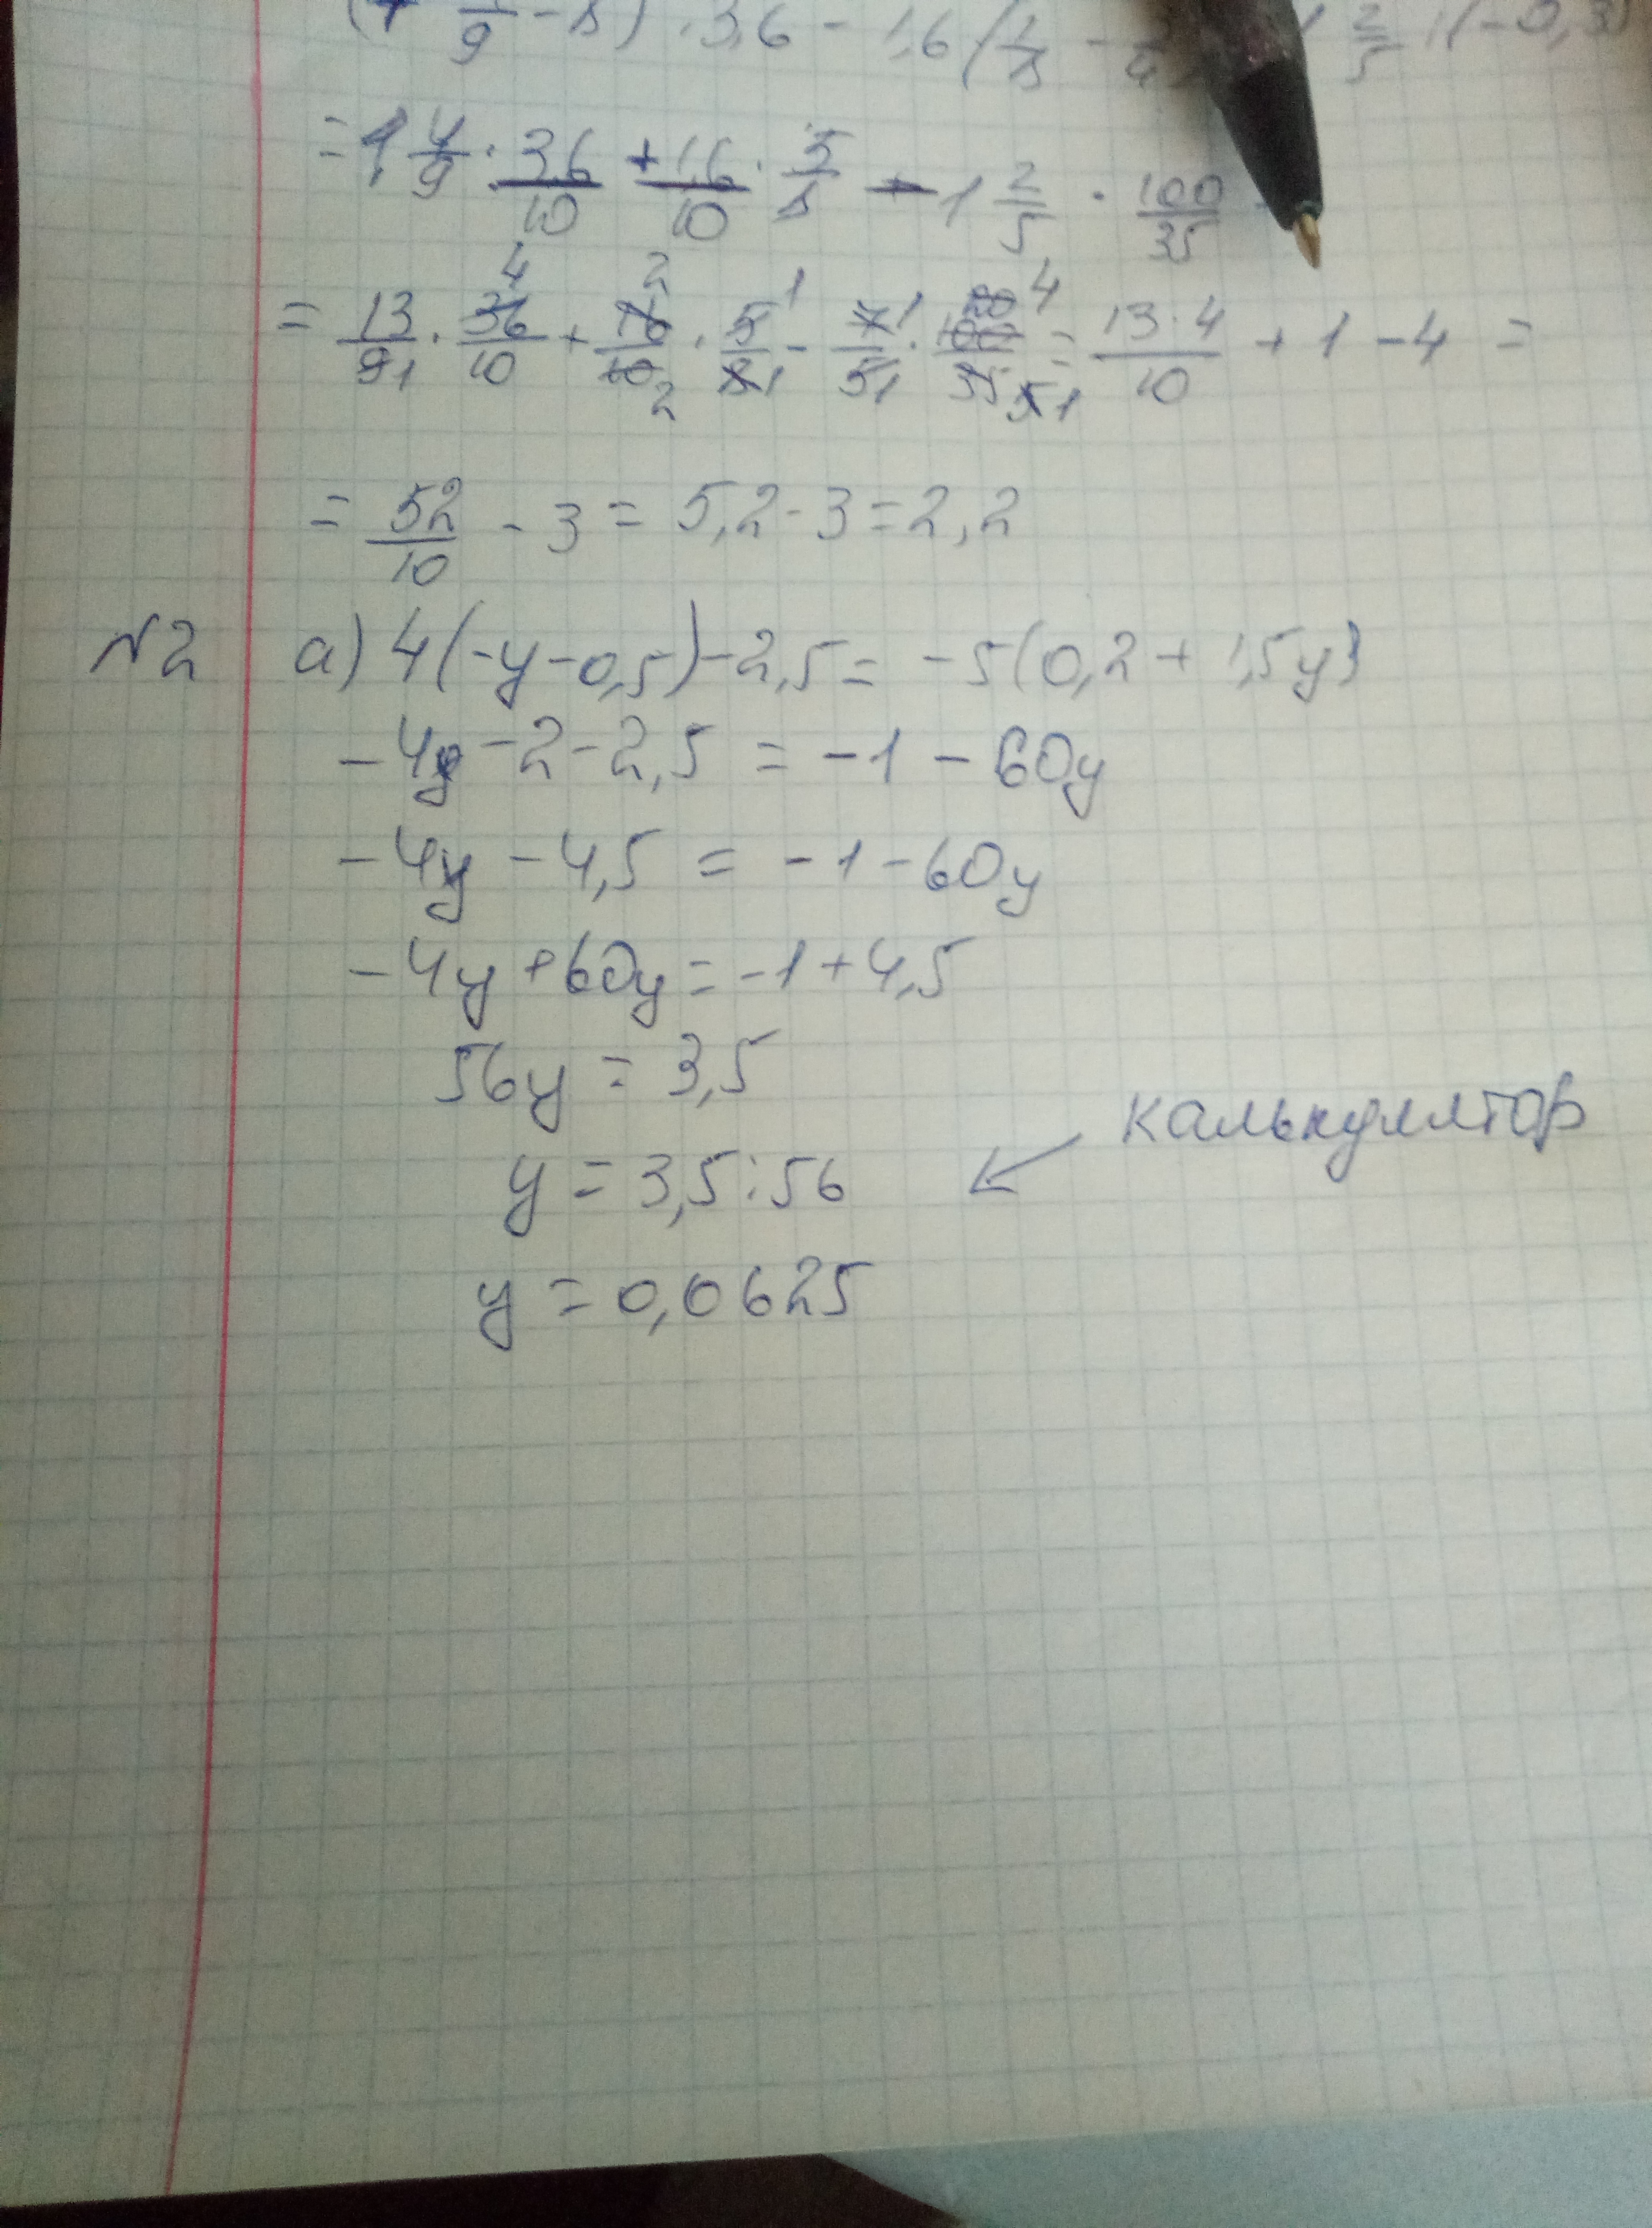 9 - 8) · 3,6 - 1,6 (1/8 - 2/5 : (-0,3
= 1 4/9 · 36/10 + 16/10 · 5/8 - 1 2/5 · 100/35
= 13/9 1 · 36/10 4 + 16/10 2 2 · 5/8 1 1 - 7/5 1 1 · 100/35 20 4 5 1 = 13·4/10 + 1 - 4 =
= 52/10 - 3 = 5,2 - 3 = 2,2
N2 а) 4(-y-0,5)-2,5 = -5(0,2 + 1,5y)
-4y - 2 - 2,5 = -1 - 60y
-4y - 4,5 = -1 - 60y
-4y + 60y = -1 + 4,5
56y = 3,5
калькулятор
y = 3,5:56
y = 0,0625